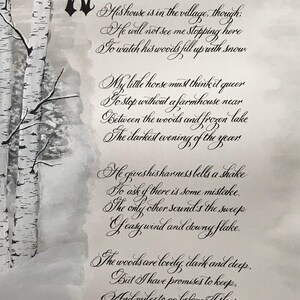 W
His house is in the village, though;
He will not see me stopping here
To watch his woods fill up with snow
My little horse must think it queer
To stop without a farmhouse near
Between the woods and frozen lake
The darkest evening of the year.
He gives his harness bells a shake
To ask if there is some mistake.
The only other sound's the sweep
Of easy wind and downy flake.
The woods are lovely, dark and deep,
But I have promises to keep,
And miles to go before I